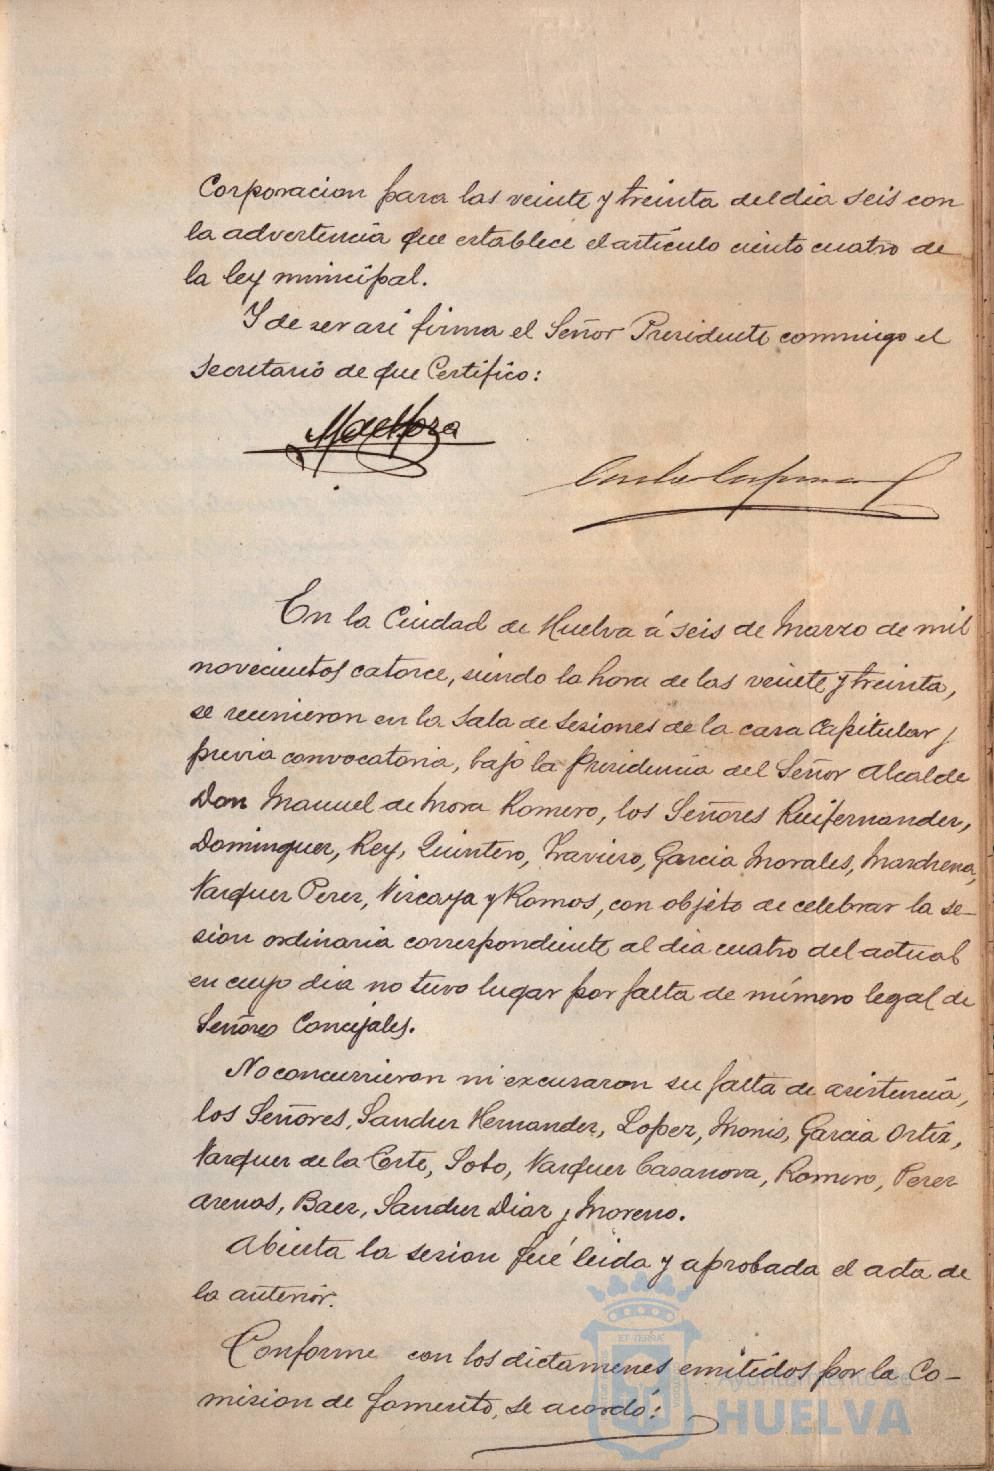 Corporacion para las veinte y treinta del dia seis con
la advertencia que establece el artículo ciento cuatro de
la ley municipal.
Y de ser asi firma el Señor Presidente conmigo el
Secretario de que Certifico:
M de Mora
En la Ciudad de Huelva á seis de Marzo de mil
novecientos catorce, siendo la hora de las veinte y treinta,
se reunieron en la Sala de Sesiones de la casa Capitular y
previa convocatoria, bajo la Presidencia del Señor Alcalde
Don Manuel de Mora Romero, los Señores Ruifernandez,
Dominguez, Rey, Quintero, Traviero, Garcia Morales, Marchena,
Vazquez Perez, Vizcaya y Ramos, con objeto de celebrar la se-
sion ordinaria correspondiente al dia cuatro del actual
en cuyo dia no tuvo lugar por falta de número legal de
Señores Concejales.
No concurrieron ni excusaron su falta de asistencia,
los Señores, Sanchez Hernandez, Lopez, Monis, Garcia Ortiz,
Vazquez de la Corte, Soto, Vazquez Casanova, Romero, Perez
Arenas, Baez, Sanchez Diaz y Moreno.
Abierta la sesion fué leida y aprobada el acta de
la anterior.
Conforme con los dictamenes emitidos por la Co-
mision de fomento, se acordó:
Ayuntamiento de
HUELVA